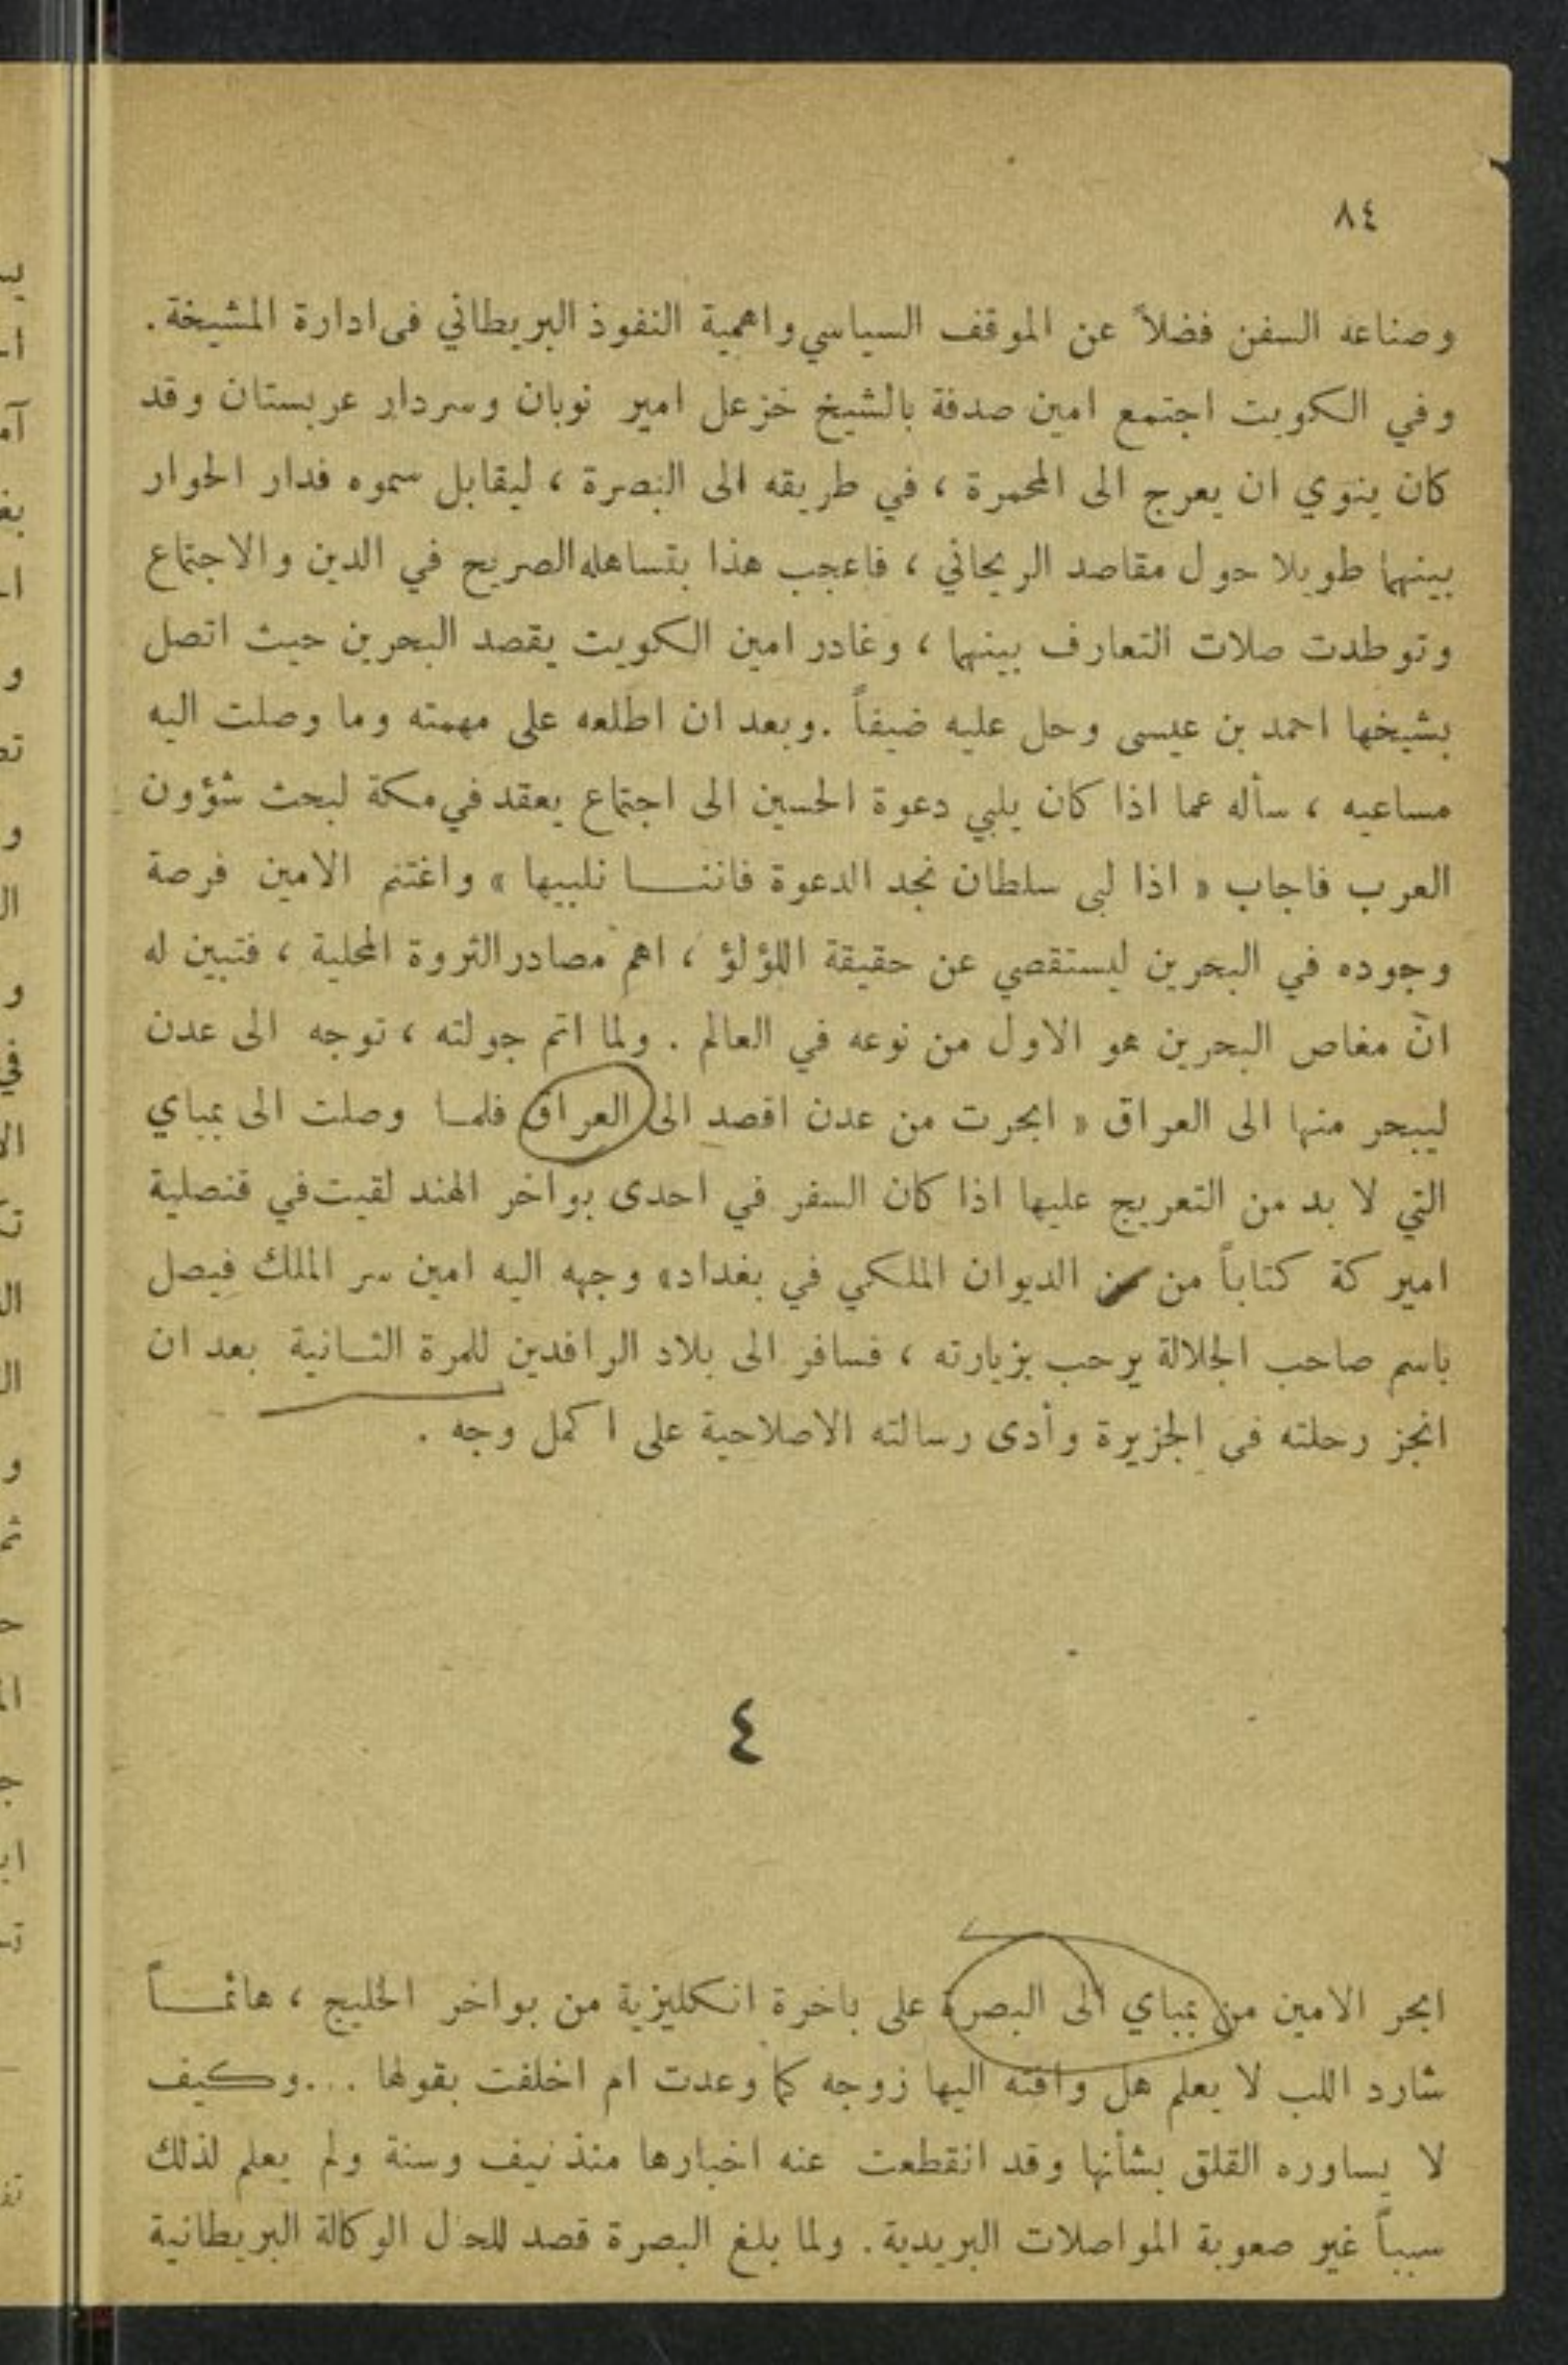 ٨٤
وصناعة السفن فضلاً عن الموقف السياسي واهمية النفوذ البريطاني في ادارة المشيخة.
وفي الكويت اجتمع امين صدفة بالشيخ خزعل امير نوبان وسردار عربستان وقد
كان ينوي ان يعرج الى المحمرة ، في طريقه الى البصرة ، ليقابل سموه فدار الحوار
بينهما طويلا حول مقاصد الريحاني ، فاعجب هذا بتساهله الصريح في الدين والاجتماع
وتوطدت صلات التعارف بينهما ، وغادر امين الكويت يقصد البحرين حيث اتصل
بشيخها احمد بن عيسى وحل عليه ضيفاً . وبعد ان اطلعه على مهمته وما وصلت اليه
مساعيه ، سأله عما اذا كان يلبي دعوة الحسين الى اجتماع يعقد في مكة لبحث شؤون
العرب فاجاب « اذا لبى سلطان نجد الدعوة فاننـــا نلبيها » واغتنم الامين فرصة
وجوده في البحرين ليستقصي عن حقيقة اللؤلؤ ، اهم مصادر الثروة المحلية ، فتبين له
انّ مغاص البحرين هو الاول من نوعه في العالم . ولما اتم جولته ، توجه الى عدن
ليبحر منها الى العراق « ابحرت من عدن اقصد الى العراق فلمـا وصلت الى بمباي
التي لا بد من التعريج عليها اذا كان السفر في احدى بواخر الهند لقيت في قنصلية
اميركة كتاباً من الديوان الملكي في بغداد» وجهه اليه امين سر الملك فيصل
باسم صاحب الجلالة يرحب بزيارته ، فسافر الى بلاد الرافدين للمرة الثـانية بعد ان
انجز رحلته في الجزيرة وأدى رسالته الاصلاحية على اكمل وجه .
٤
ابحر الامين من بمباي الى البصرة على باخرة انكليزية من بواخر الخليج ، هائمـــاً
شارد اللب لا يعلم هل وافته اليها زوجه كما وعدت ام اخلفت بقولها ... وكيف
لا يساوره القلق بشأنها وقد انقطعت عنه اخبارها منذ نيف وسنة ولم يعلم لذلك
سبباً غير صعوبة المواصلات البريدية. ولما بلغ البصرة قصد للحال الوكالة البريطانية